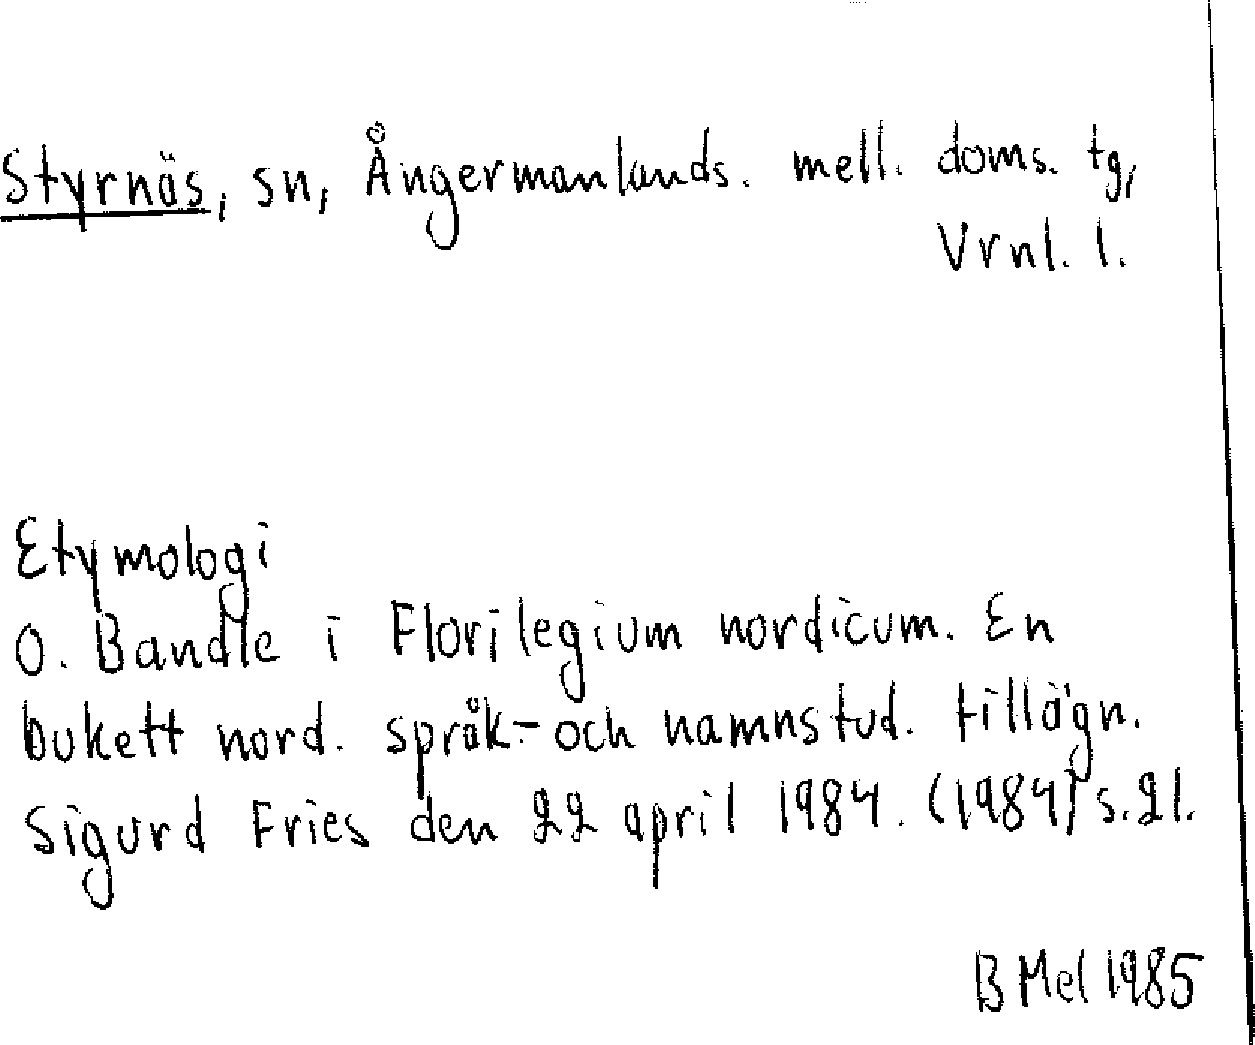 Styrnäs, sn, Ångermanlands. mell. doms. tg,
Vrnl. l.
Etymologi
O. Bandle i Florilegium nordicum. En
bukett nord. språk- och namnstud. tillägn.
Sigurd Fries den 22 april 1984. (1984) s. 21.
B Mel 1985